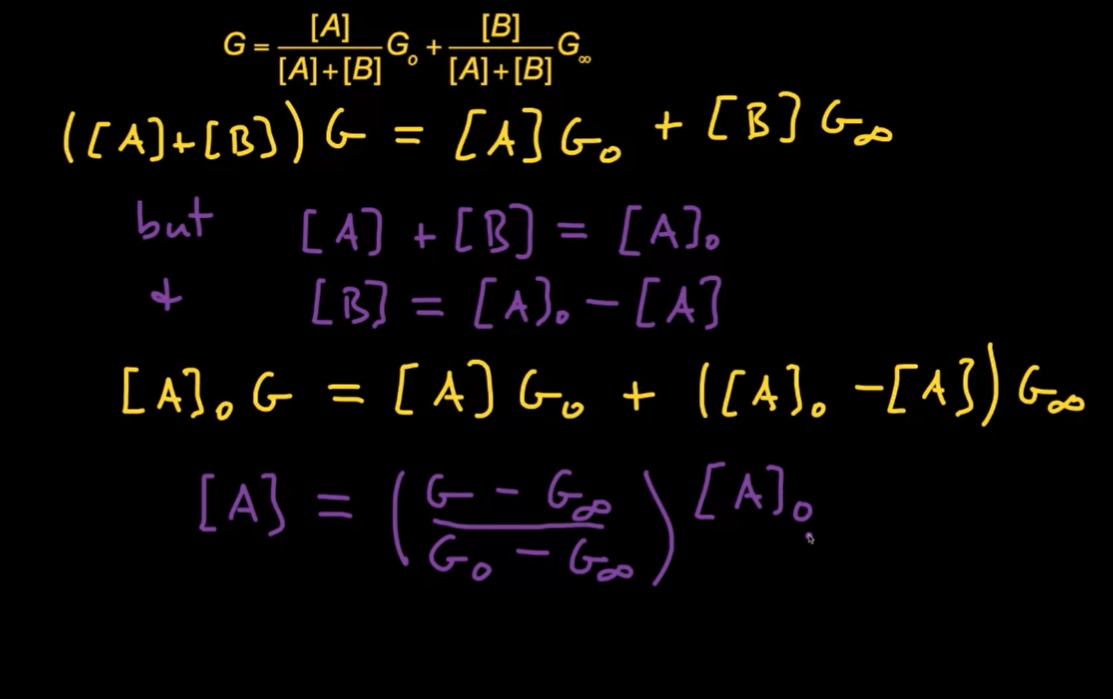 G = [A]/([A]+[B]) G₀ + [B]/([A]+[B]) G∞
([A]+[B]) G = [A] G₀ + [B] G∞
but [A] + [B] = [A]₀
& [B] = [A]₀ − [A]
[A]₀ G = [A] G₀ + ([A]₀ − [A]) G∞
[A] = ((G − G∞)/(G₀ − G∞)) [A]₀